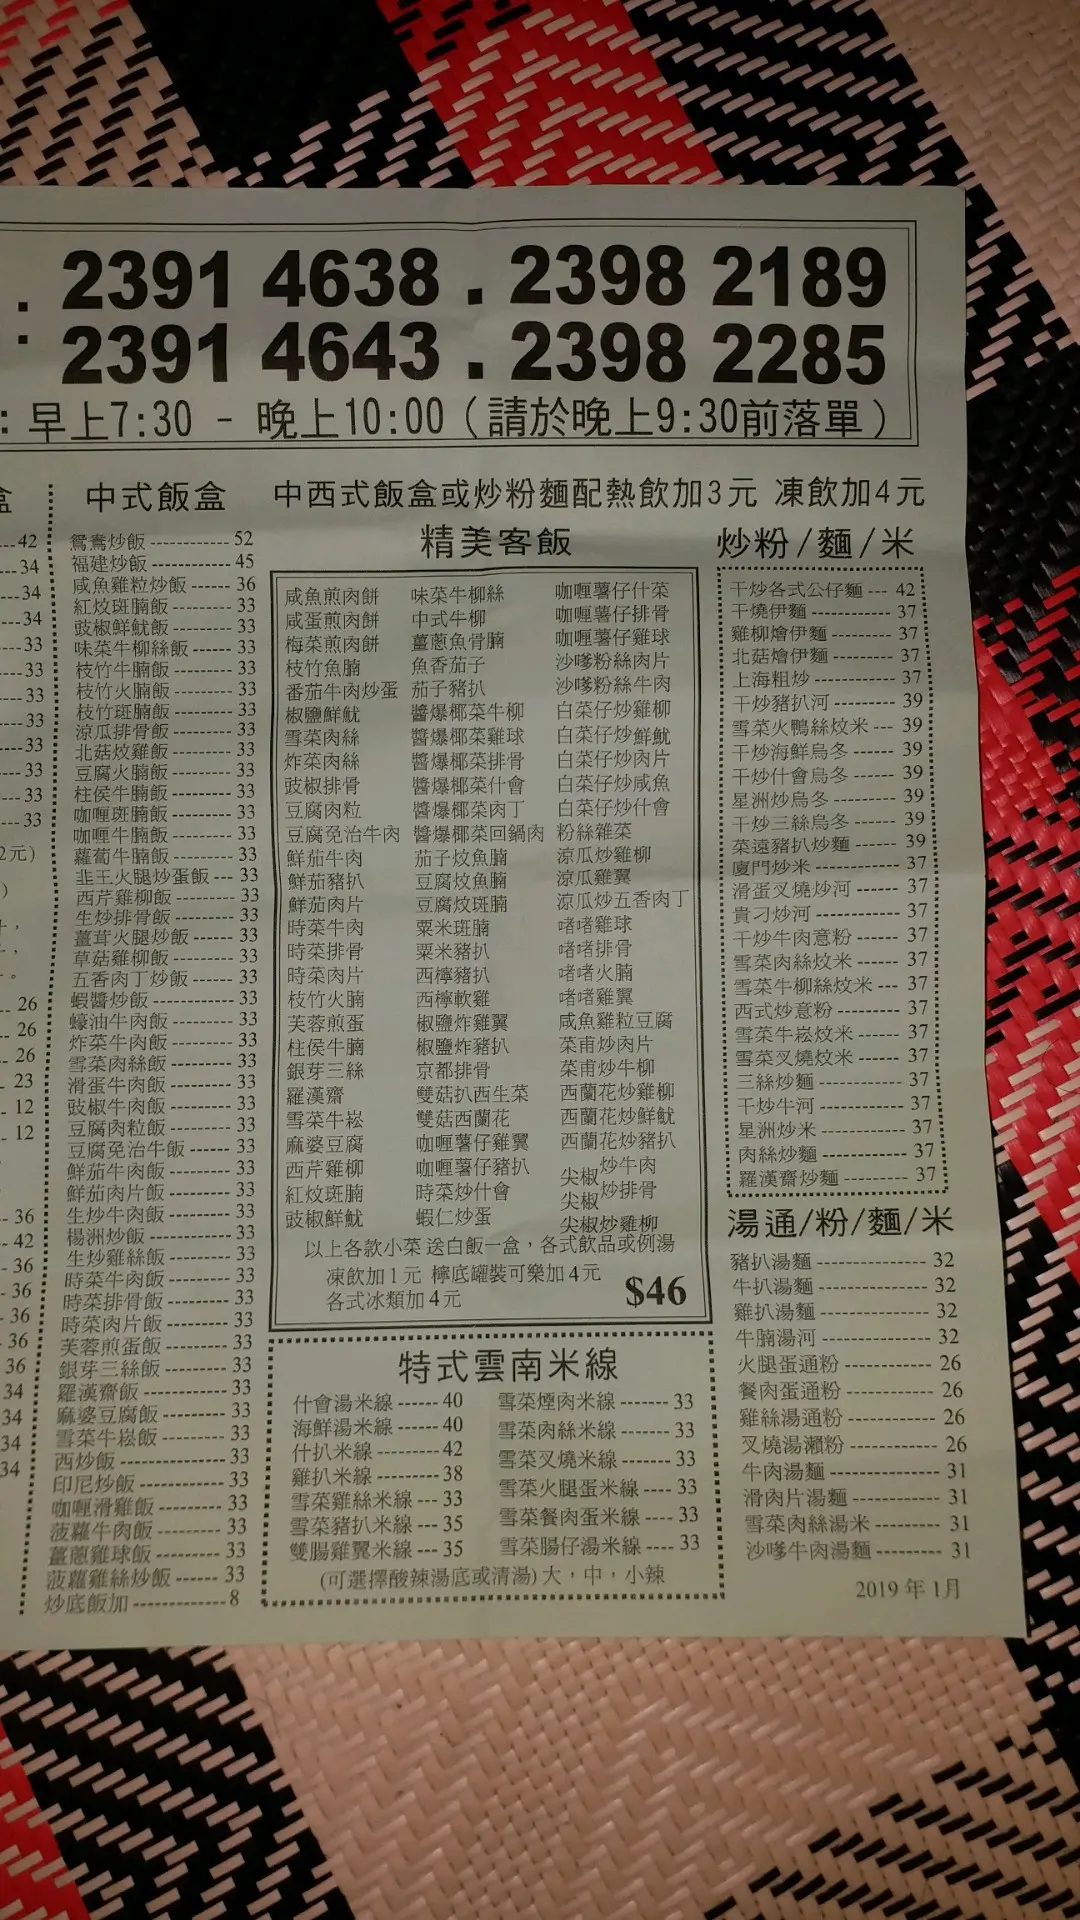 . 2391 4638 . 2398 2189
: 2391 4643 . 2398 2285
: 早上7:30 - 晚上10:00 (請於晚上9:30前落單)
盒
42
34
34
34
33
33
33
33
33
33
33
33
2元)
)
26
26
26
23
12
12
36
42
36
36
36
36
34
34
34
34
中式飯盒
鴛鴦炒飯 ----------- 52
福建炒飯 ----------- 45
咸魚雞粒炒飯 ------ 36
紅炆斑腩飯 -------- 33
豉椒鮮魷飯 -------- 33
味菜牛柳絲飯 ------ 33
枝竹牛腩飯 -------- 33
枝竹火腩飯 -------- 33
枝竹斑腩飯 -------- 33
涼瓜排骨飯 -------- 33
北菇炆雞飯 -------- 33
豆腐火腩飯 -------- 33
柱侯牛腩飯 -------- 33
咖喱斑腩飯 -------- 33
咖喱牛腩飯 -------- 33
蘿蔔牛腩飯 -------- 33
韭王火腿炒蛋飯 --- 33
西芹雞柳飯 -------- 33
生炒排骨飯 -------- 33
薑茸火腿炒飯 ------ 33
草菇雞柳飯 -------- 33
五香肉丁炒飯 ------ 33
蝦醬炒飯 ----------- 33
蠔油牛肉飯 -------- 33
炸菜牛肉飯 -------- 33
雪菜肉絲飯 -------- 33
滑蛋牛肉飯 -------- 33
豉椒牛肉飯 -------- 33
豆腐肉粒飯 -------- 33
豆腐免治牛飯 ------ 33
鮮茄牛肉飯 -------- 33
鮮茄肉片飯 -------- 33
生炒牛肉飯 -------- 33
楊洲炒飯 ----------- 33
生炒雞絲飯 -------- 33
時菜牛肉飯 -------- 33
時菜排骨飯 -------- 33
時菜肉片飯 -------- 33
芙蓉煎蛋飯 -------- 33
銀芽三絲飯 -------- 33
羅漢齋飯 ----------- 33
麻婆豆腐飯 -------- 33
雪菜牛崧飯 -------- 33
西炒飯 -------------- 33
印尼炒飯 ----------- 33
咖喱滑雞飯 -------- 33
菠蘿牛肉飯 -------- 33
薑蔥雞球飯 -------- 33
菠蘿雞絲炒飯 ------ 33
炒底飯加 ------------ 8
中西式飯盒或炒粉麵配熱飲加3元 凍飲加4元
精美客飯
咸魚煎肉餅 味菜牛柳絲 咖喱薯仔什菜
咸蛋煎肉餅 中式牛柳 咖喱薯仔排骨
梅菜煎肉餅 薑蔥魚骨腩 咖喱薯仔雞球
枝竹魚腩 魚香茄子 沙嗲粉絲肉片
番茄牛肉炒蛋 茄子豬扒 沙嗲粉絲牛肉
椒鹽鮮魷 醬爆椰菜牛柳 白菜仔炒雞柳
雪菜肉絲 醬爆椰菜雞球 白菜仔炒鮮魷
炸菜肉絲 醬爆椰菜排骨 白菜仔炒肉片
豉椒排骨 醬爆椰菜什會 白菜仔炒咸魚
豆腐肉粒 醬爆椰菜肉丁 白菜仔炒什會
豆腐免治牛肉 醬爆椰菜回鍋肉 粉絲雜菜
鮮茄牛肉 茄子炆魚腩 涼瓜炒雞柳
鮮茄豬扒 豆腐炆魚腩 涼瓜雞翼
鮮茄肉片 豆腐炆斑腩 涼瓜炒五香肉丁
時菜牛肉 粟米斑腩 啫啫雞球
時菜排骨 粟米豬扒 啫啫排骨
時菜肉片 西檸豬扒 啫啫火腩
枝竹火腩 西檸軟雞 啫啫雞翼
芙蓉煎蛋 椒鹽炸雞翼 咸魚雞粒豆腐
柱侯牛腩 椒鹽炸豬扒 菜甫炒肉片
銀芽三絲 京都排骨 菜甫炒牛柳
羅漢齋 雙菇扒西生菜 西蘭花炒雞柳
雪菜牛崧 雙菇西蘭花 西蘭花炒鮮魷
麻婆豆腐 咖喱薯仔雞翼 西蘭花炒豬扒
西芹雞柳 咖喱薯仔豬扒 尖椒炒牛肉
紅炆斑腩 時菜炒什會 尖椒炒排骨
豉椒鮮魷 蝦仁炒蛋 尖椒炒雞柳
以上各款小菜送白飯一盒，各式飲品或例湯
凍飲加1元 檸底罐裝可樂加4元
各式冰類加4元 $46
特式雲南米線
什會湯米線 ------ 40 雪菜煙肉米線 ------ 33
海鮮湯米線 ------ 40 雪菜肉絲米線 ------ 33
什扒米線 --------- 42 雪菜叉燒米線 ------ 33
雞扒米線 --------- 38 雪菜火腿蛋米線 ---- 33
雪菜雞絲米線 --- 33 雪菜餐肉蛋米線 ---- 33
雪菜豬扒米線 --- 35 雪菜腸仔湯米線 ---- 33
雙腸雞翼米線 --- 35
(可選擇酸辣湯底或清湯) 大，中，小辣
炒粉/麵/米
干炒各式公仔麵 --- 42
干燒伊麵 ----------- 37
雞柳燴伊麵 -------- 37
北菇燴伊麵 -------- 37
上海粗炒 ----------- 37
干炒豬扒河 -------- 39
雪菜火鴨絲炆米 --- 39
干炒海鮮烏冬 ------ 39
干炒什會烏冬 ------ 39
星洲炒烏冬 -------- 39
干炒三絲烏冬 ------ 39
菜遠豬扒炒麵 ------ 39
廈門炒米 ----------- 37
滑蛋叉燒炒河 ------ 37
貴刁炒河 ----------- 37
干炒牛肉意粉 ------ 37
雪菜肉絲炆米 ------ 37
雪菜牛柳絲炆米 --- 37
西式炒意粉 -------- 37
雪菜牛崧炆米 ------ 37
雪菜叉燒炆米 ------ 37
三絲炒麵 ----------- 37
干炒牛河 ----------- 37
星洲炒米 ----------- 37
肉絲炒麵 ----------- 37
羅漢齋炒麵 -------- 37
湯通/粉/麵/米
豬扒湯麵 ----------- 32
牛扒湯麵 ----------- 32
雞扒湯麵 ----------- 32
牛腩湯河 ----------- 32
火腿蛋通粉 -------- 26
餐肉蛋通粉 -------- 26
雞絲湯通粉 -------- 26
叉燒湯瀨粉 -------- 26
牛肉湯麵 ----------- 31
滑肉片湯麵 -------- 31
雪菜肉絲湯米 ------ 31
沙嗲牛肉湯麵 ------ 31
2019年1月